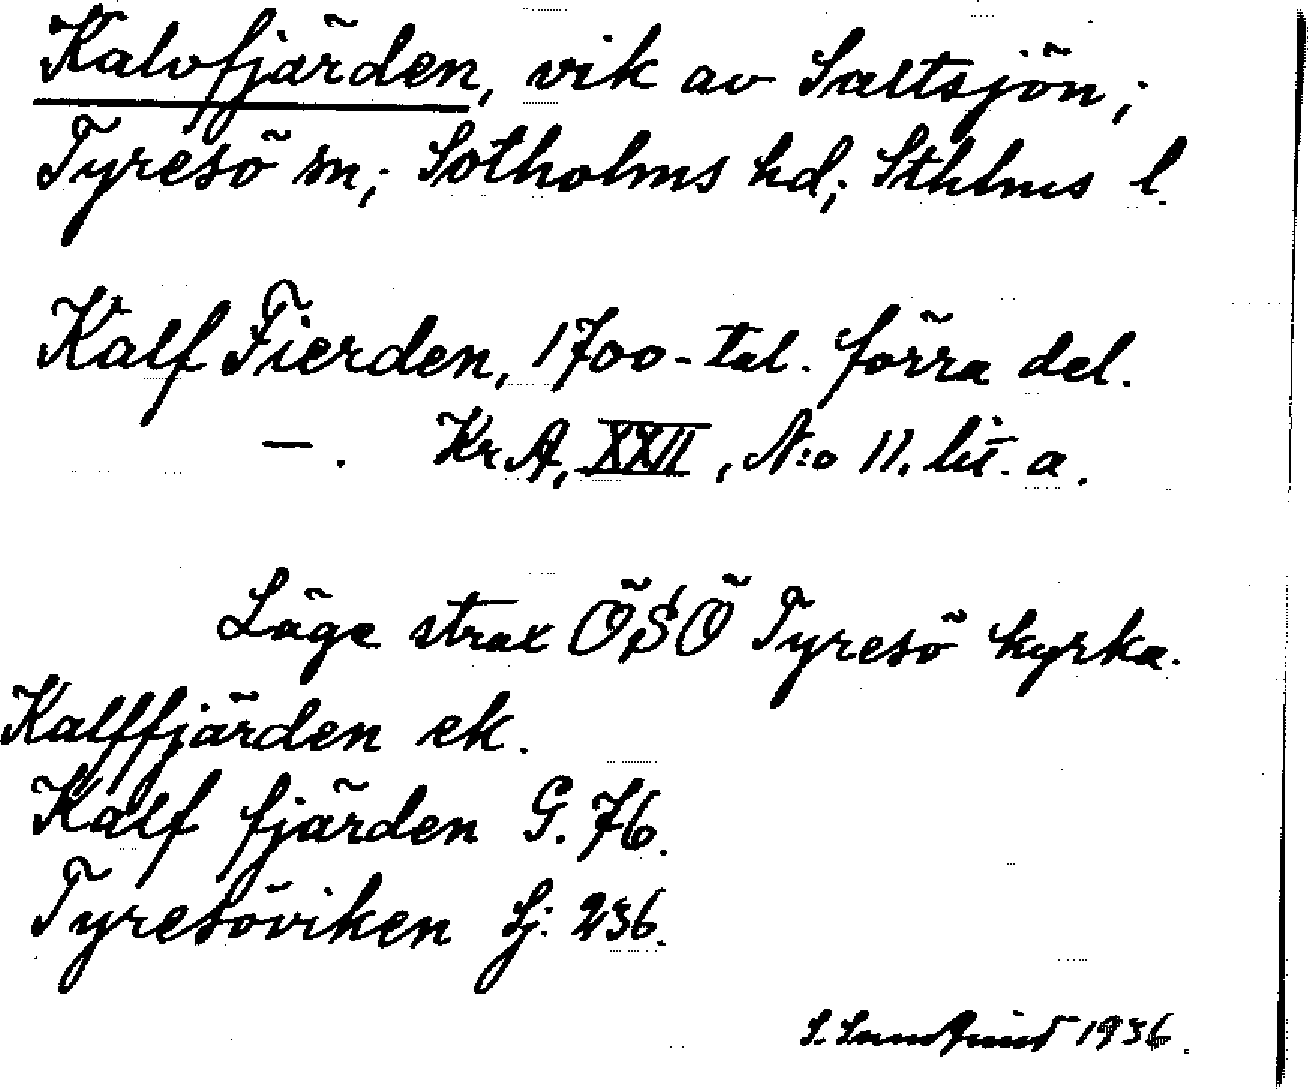 Kalvfjärden, vik av Saltsjön;
Tyresö sn; Sotholms hd; Sthlms l.
Kalf Fierden, 1700-tal. förra del.
— . KrA, XXII, N:o 11. lit. a.
Läge strax ÖSÖ Tyresö kyrka.
Kalffjärden ek.
Kalf fjärden G. 76.
Tyresöviken Sj: 236.
S. 1936.